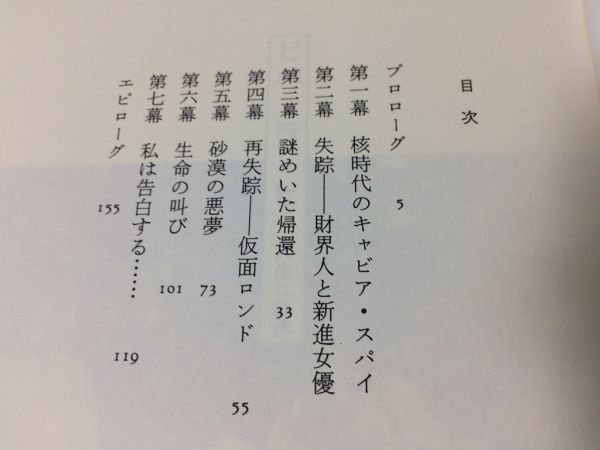 目次
プロローグ 5
第一幕 核時代のキャビア・スパイ
第二幕 失踪――財界人と新進女優
第三幕 謎めいた帰還 33
第四幕 再失踪――仮面ロンド 55
第五幕 砂漠の悪夢 73
第六幕 生命の叫び 101
第七幕 私は告白する…… 119
エピローグ 155